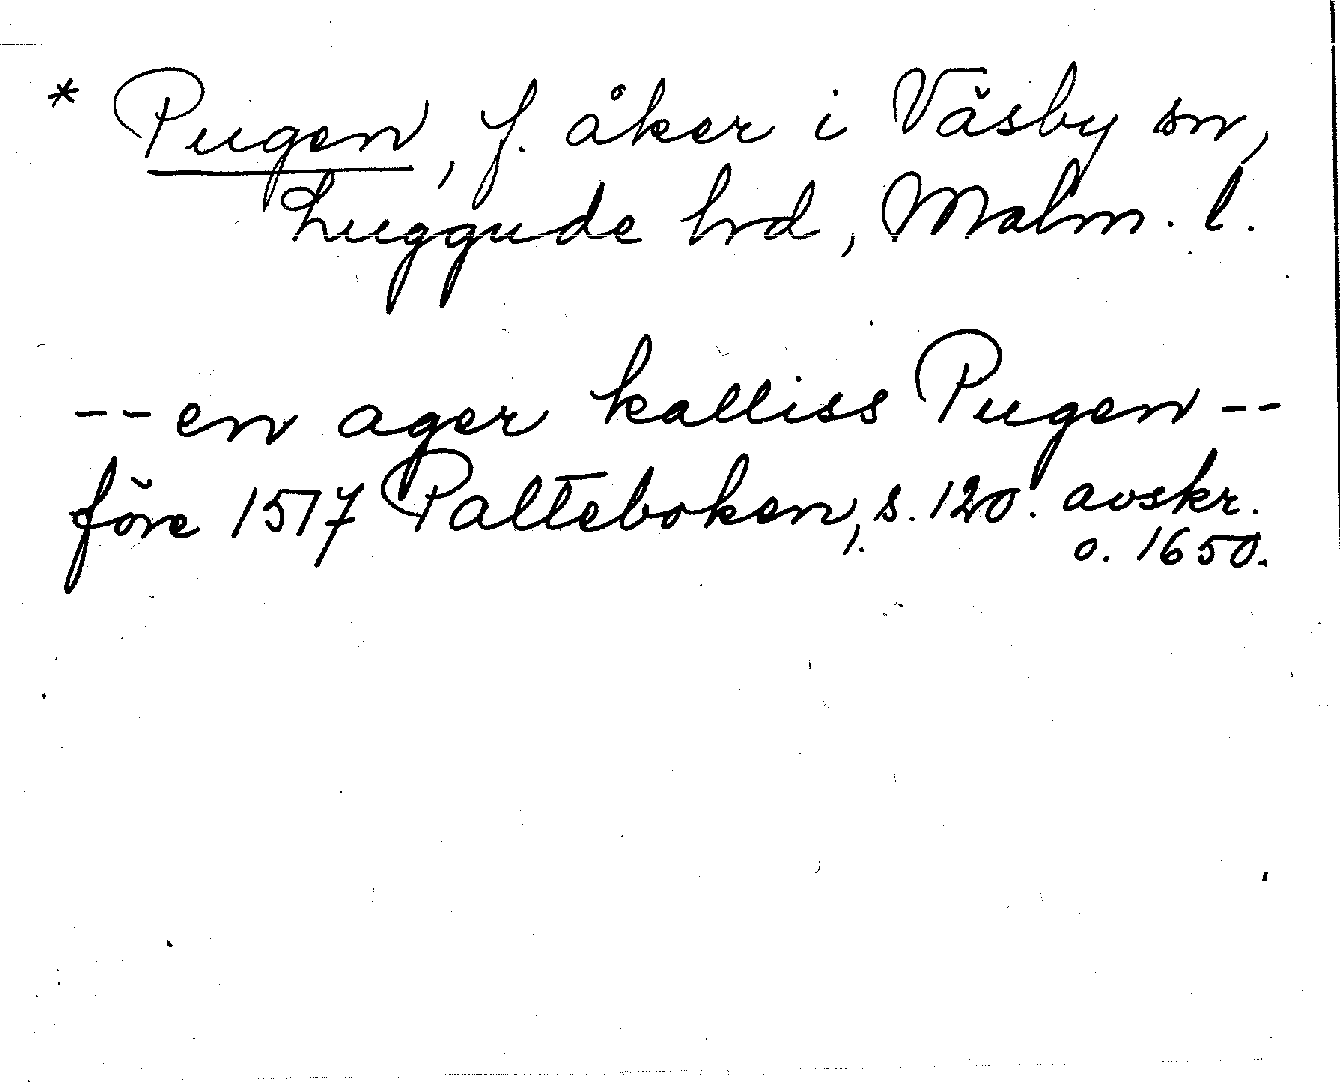 * Pugen, f. åker i Väsby sn,
Luggude hrd, Malm. l.
-- en ager kalliss Pugen --
före 1517 Palteboken, s. 120. avskr.
o. 1650.